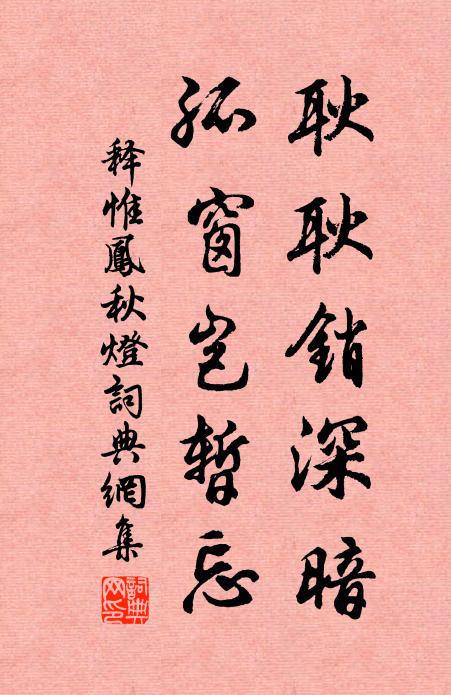 耿耿銷深暗
孤窗岂暫忘
释惟鳳秋燈詞典網集
詞典網印